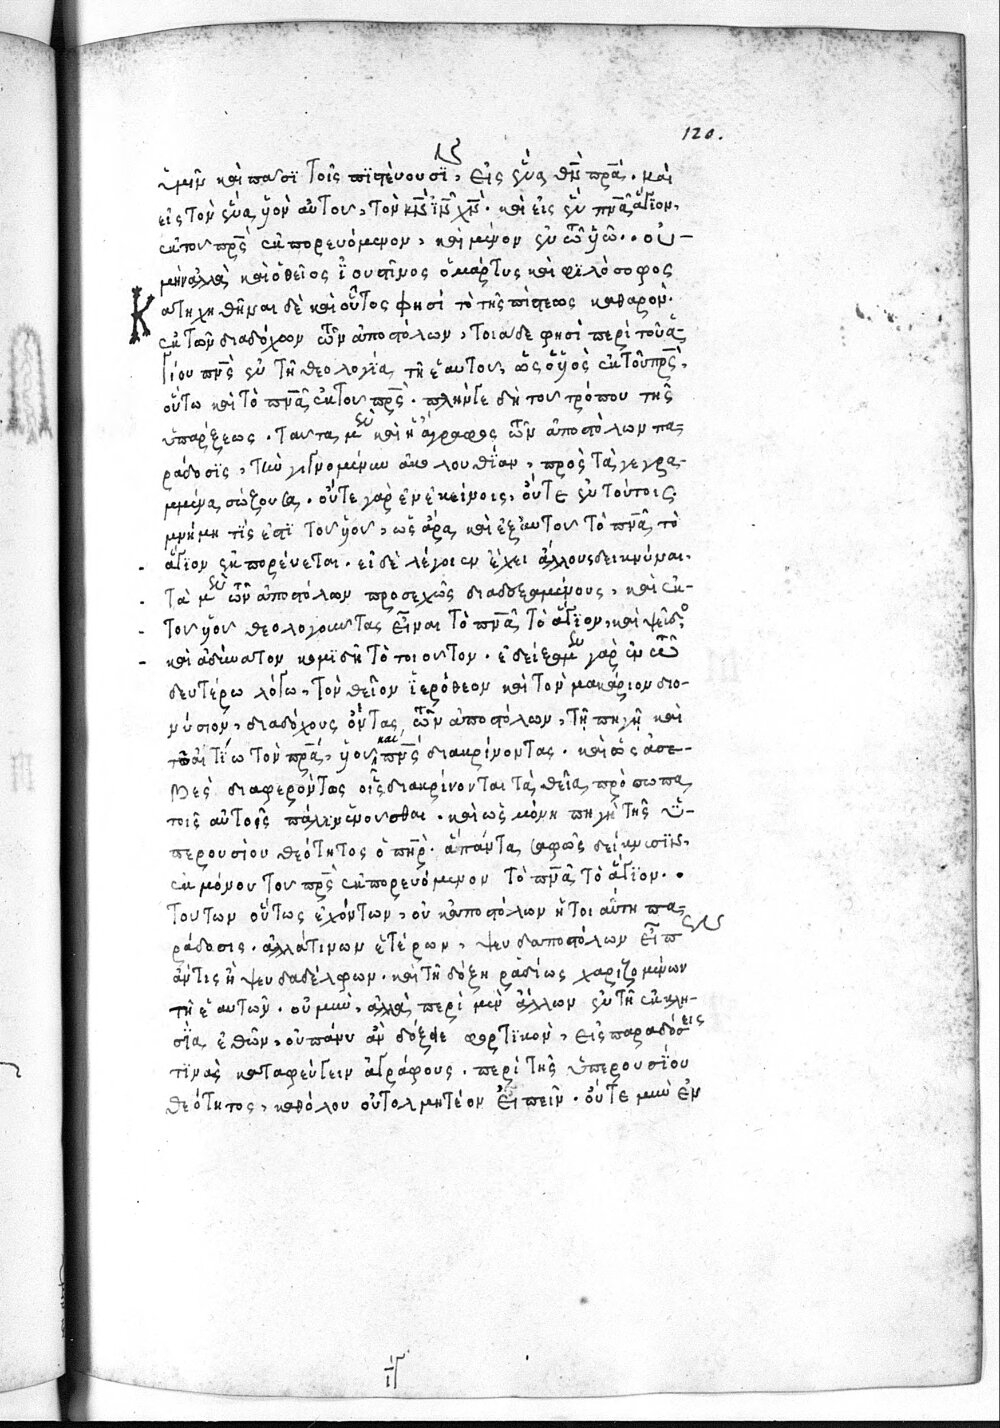 120.
ὑμῖν καὶ πᾶσι τοῖς πιστεύουσι, εἰς ἕνα θν̅ πρ̅α. καὶ
εἰς τὸν ἕνα υἱὸν αὐτοῦ, τὸν κν̅ ἰν̅ χν̅. καὶ εἰς ἓν πνᾶ ἅγιον,
ἐκ τοῦ πρ̅ς ἐκπορευόμενον, καὶ μένον ἐν τῷ υἱῷ.. οὐ
μὴν ἀλλὰ καὶ ὁ θεῖος ἰουστῖνος ὁ μάρτυς καὶ φιλόσοφος
Κατηχηθῆναι δὲ καὶ οὗτος φησὶ τὸ τῆς πίστεως καθαρὸν.
ἐκ τῶν διαδόχων τῶν ἀποστόλων, τοιάδε φησὶ περὶ τοῦ ἁ-
γίου πν̅ς ἐν τῇ θεολογίᾳ τῇ ἑαυτοῦ, ὡς ὁ υἱὸς ἐκ τοῦ πρ̅ς,
οὕτω καὶ τὸ πνᾶ ἐκ τοῦ πρ̅ς. πλήν γε δὴ τοῦ τρόπου τῆς
ὑπάρξεως. ταῦτα μὲν καὶ ἡ ἄγραφος τῶν ἀποστόλων πα-
ράδοσις, τὴν γιγνομένην ἀκολουθίαν, πρὸς τὰ γεγρα-
μμένα σώζουσα. οὔτε γὰρ ἐν ἐκείνοις, οὔτε ἐν τούτοις
μνήμη τίς ἐστι τοῦ υἱοῦ, ὡς ἄρα καὶ ἐξ αὐτοῦ τὸ πνᾶ τὸ
ἅγιον ἐκπορεύεται. εἰ δὲ λέγοιεν ἔχει ἄλλους δεικνύναι.
τὰ μὲν τῶν ἀποστόλων προσεχῶς διαδεξαμένους, καὶ ἐκ
τοῦ υἱοῦ θεολογοῦντας εἶναι τὸ πνᾶ τὸ ἅγιον, καὶ ψεῦδος
καὶ ἀδύνατον κομιδῆ τὸ τοιοῦτον. ἐδείξαμεν γὰρ ἐν τῷ
δευτέρω λόγω, τὸν θεῖον ἱερόθεον καὶ τὸν μακάριον διο-
νύσιον, διαδόχους ὄντας τῶν ἀποστόλων, τῇ πηγῇ καὶ
τῶ αἰτίω τὸν πρ̅α, υἱοῦ καὶ πν̅ς διακρίνοντας. καὶ ὡς ἀσε-
βὲς διαφερόντως οἷς διακρίνονται τὰ θεῖα πρόσωπα
τοῖς αὐτοῖς πάλιν ἑνοῦσθαι. καὶ ὡς μόνη πηγὴ τῆς ὑ-
περουσίου θεότητος ὁ πηρ̅. ἅπαντα σαφῶς δείκνυσιν,
ἐκ μόνου τοῦ πρ̅ς ἐκπορευόμενον τὸ πνᾶ τὸ ἅγιον..
τούτων οὕτως ἐχόντων, οὐκ ἀποστόλων ἤτοι αὕτη πα-
ράδοσις. ἀλλά τινων ἑτέρων, ψευδαποστόλων εἴπ
ἄν τις ἢ ψευδαδέλφων. καὶ τῇ δόξῃ ῥαδίως χαριζομένων
τῇ ἑαυτῶν. οὐ μὴν, ἀλλὰ περὶ μὲν ἄλλων ἐν τῇ ἐκκλη-
σίᾳ ἐθῶν, οὐ πάνυ ἂν δόξῃ φορτικὸν, εἰς παραδόσεις
τινὰς καταφεύγειν ἀγράφους. περὶ τῆς ὑπερουσίου
θεότητος, καθόλου οὐ τολμητέον εἰπεῖν. οὔτε μὴν ἐν